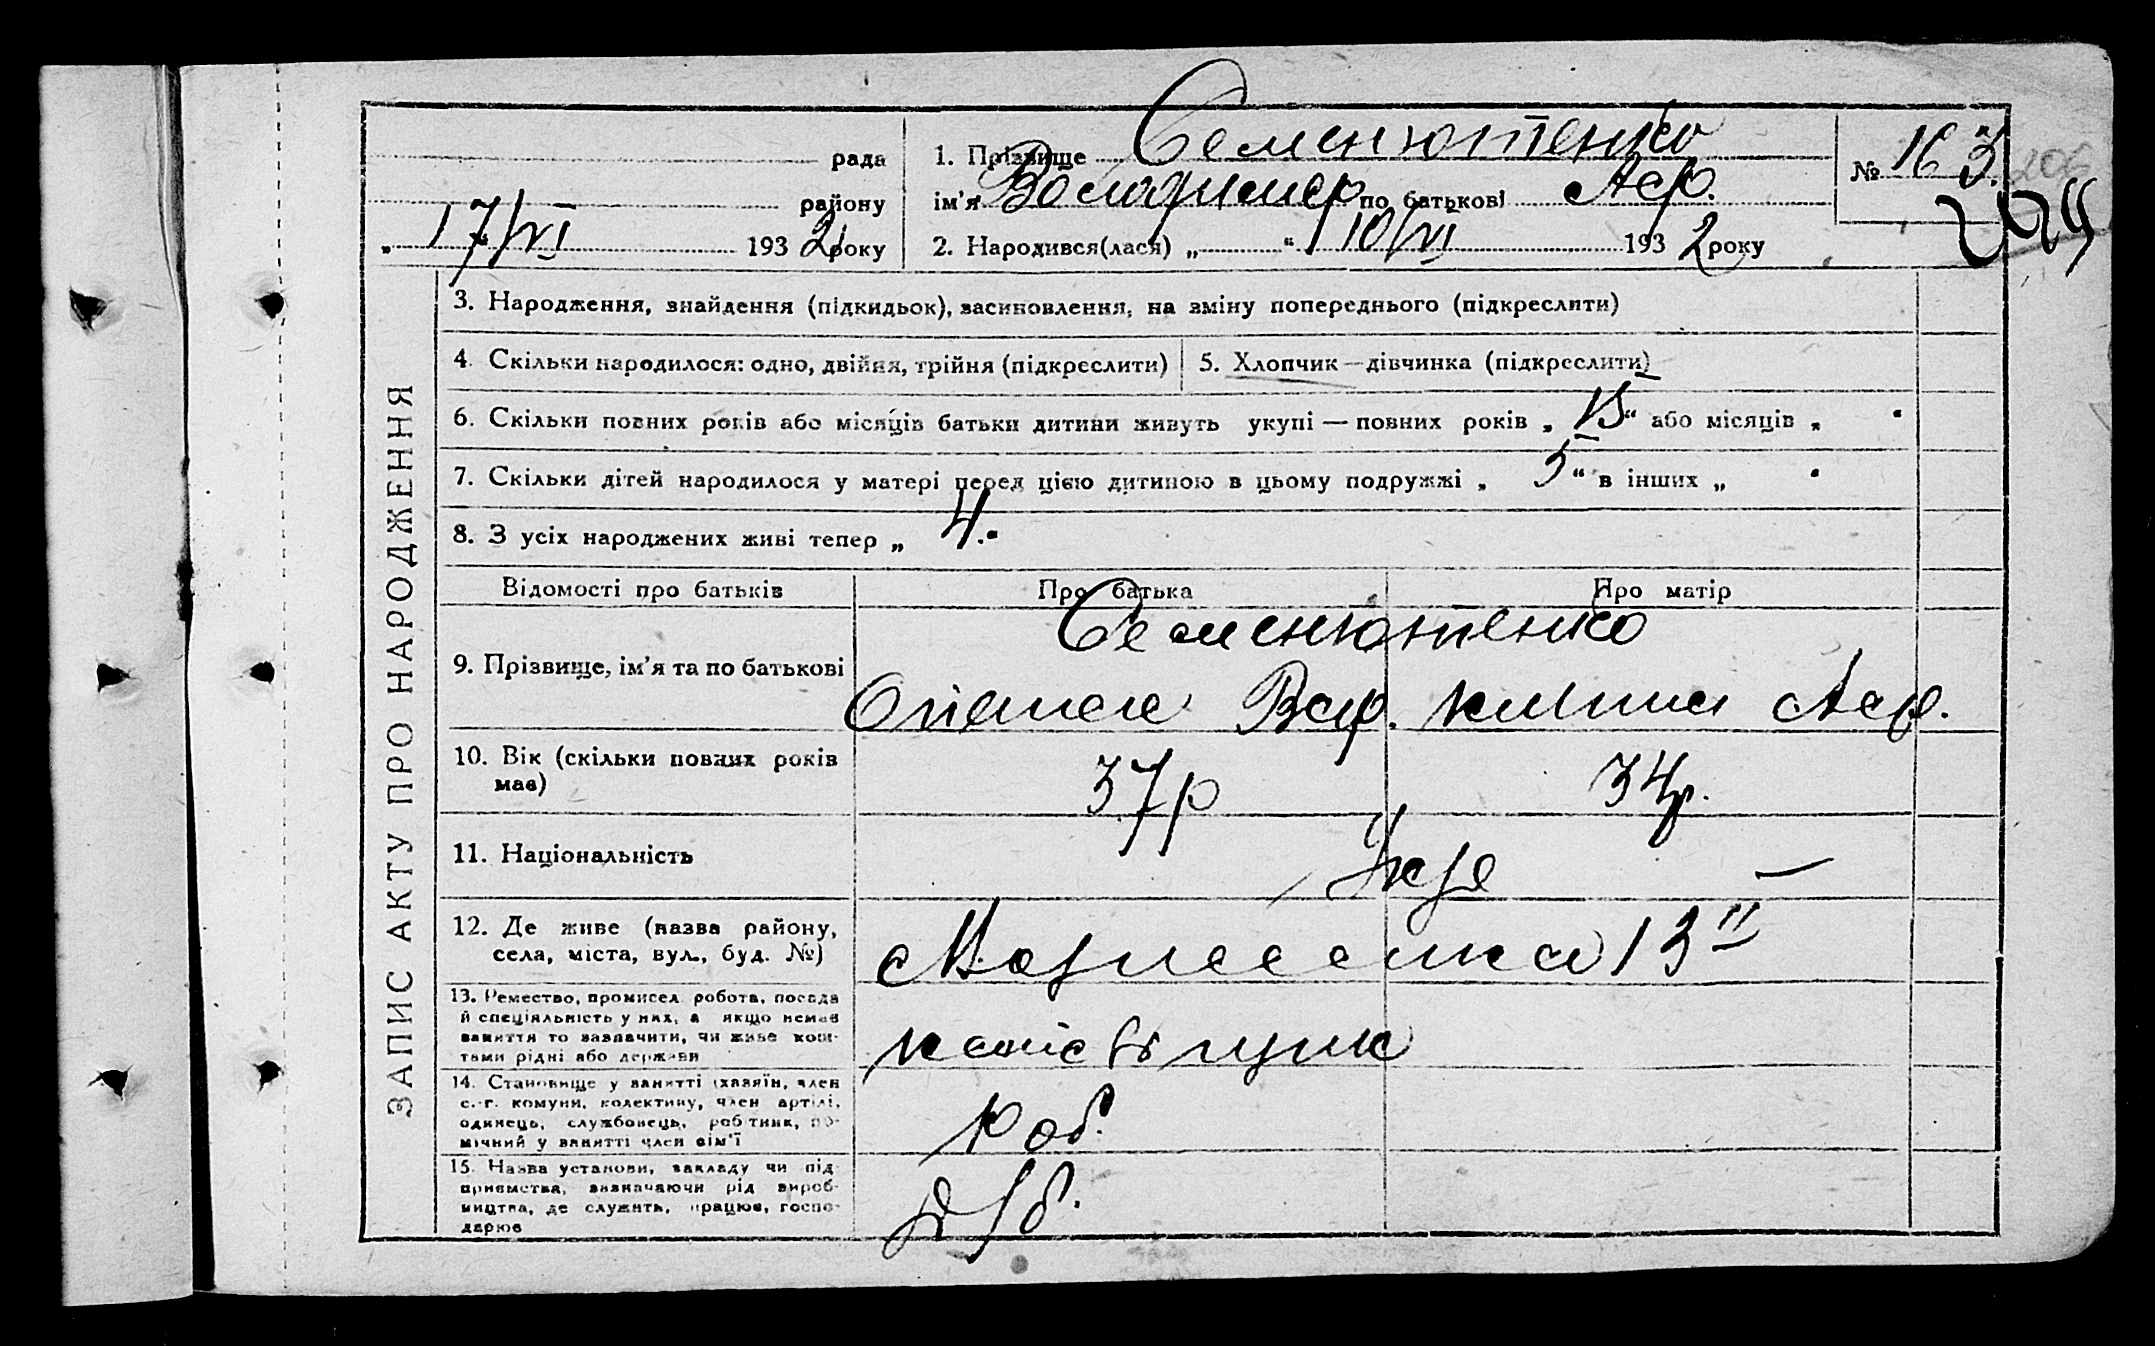 Семенютенко
рада 1. Прізвище № 163. 206
району ім'я Володимир по батькові
„ 17/VI 1932 року 2. Народився(лася) „ “ 10/VI 1932 року
3. Народження, знайдення (підкидьок), засиновлення, на зміну попереднього (підкреслити)
4. Скільки народилося: одно, двійня, трійня (підкреслити) 5. Хлопчик — дівчинка (підкреслити)
6. Скільки повних років або місяців батьки дитини живуть укупі — повних років „ 15 “ або місяців „ “
7. Скільки дітей народилося у матері перед цією дитиною в цьому подружжі „ 5 “ в інших „ “
8. З усіх народжених живі тепер „ 4. “
ЗАПИС АКТУ ПРО НАРОДЖЕННЯ
Відомості про батьків Про батька Про матір
Семенютенко
9. Прізвище, ім'я та по батькові
10. Вік (скільки повних років має) 37р 34р.
11. Національність Укр —
12. Де живе (назва району, села, міста, вул., буд. №) Вознесенка 13
13. Ремество, промисел робота, посада й спеціяльність у них, а якщо немає заняття то зазначити, чи живе коштами рідні або держави
14. Становище у занятті (хазяїн, член с.-г. комуни, колективу, член артілі, одинець, службовець, робітник, помічний у занятті член сім'ї роб.
15. Назва установи, закладу чи підприємства, зазначаючи рід виробництва, де служить, працює, господарює